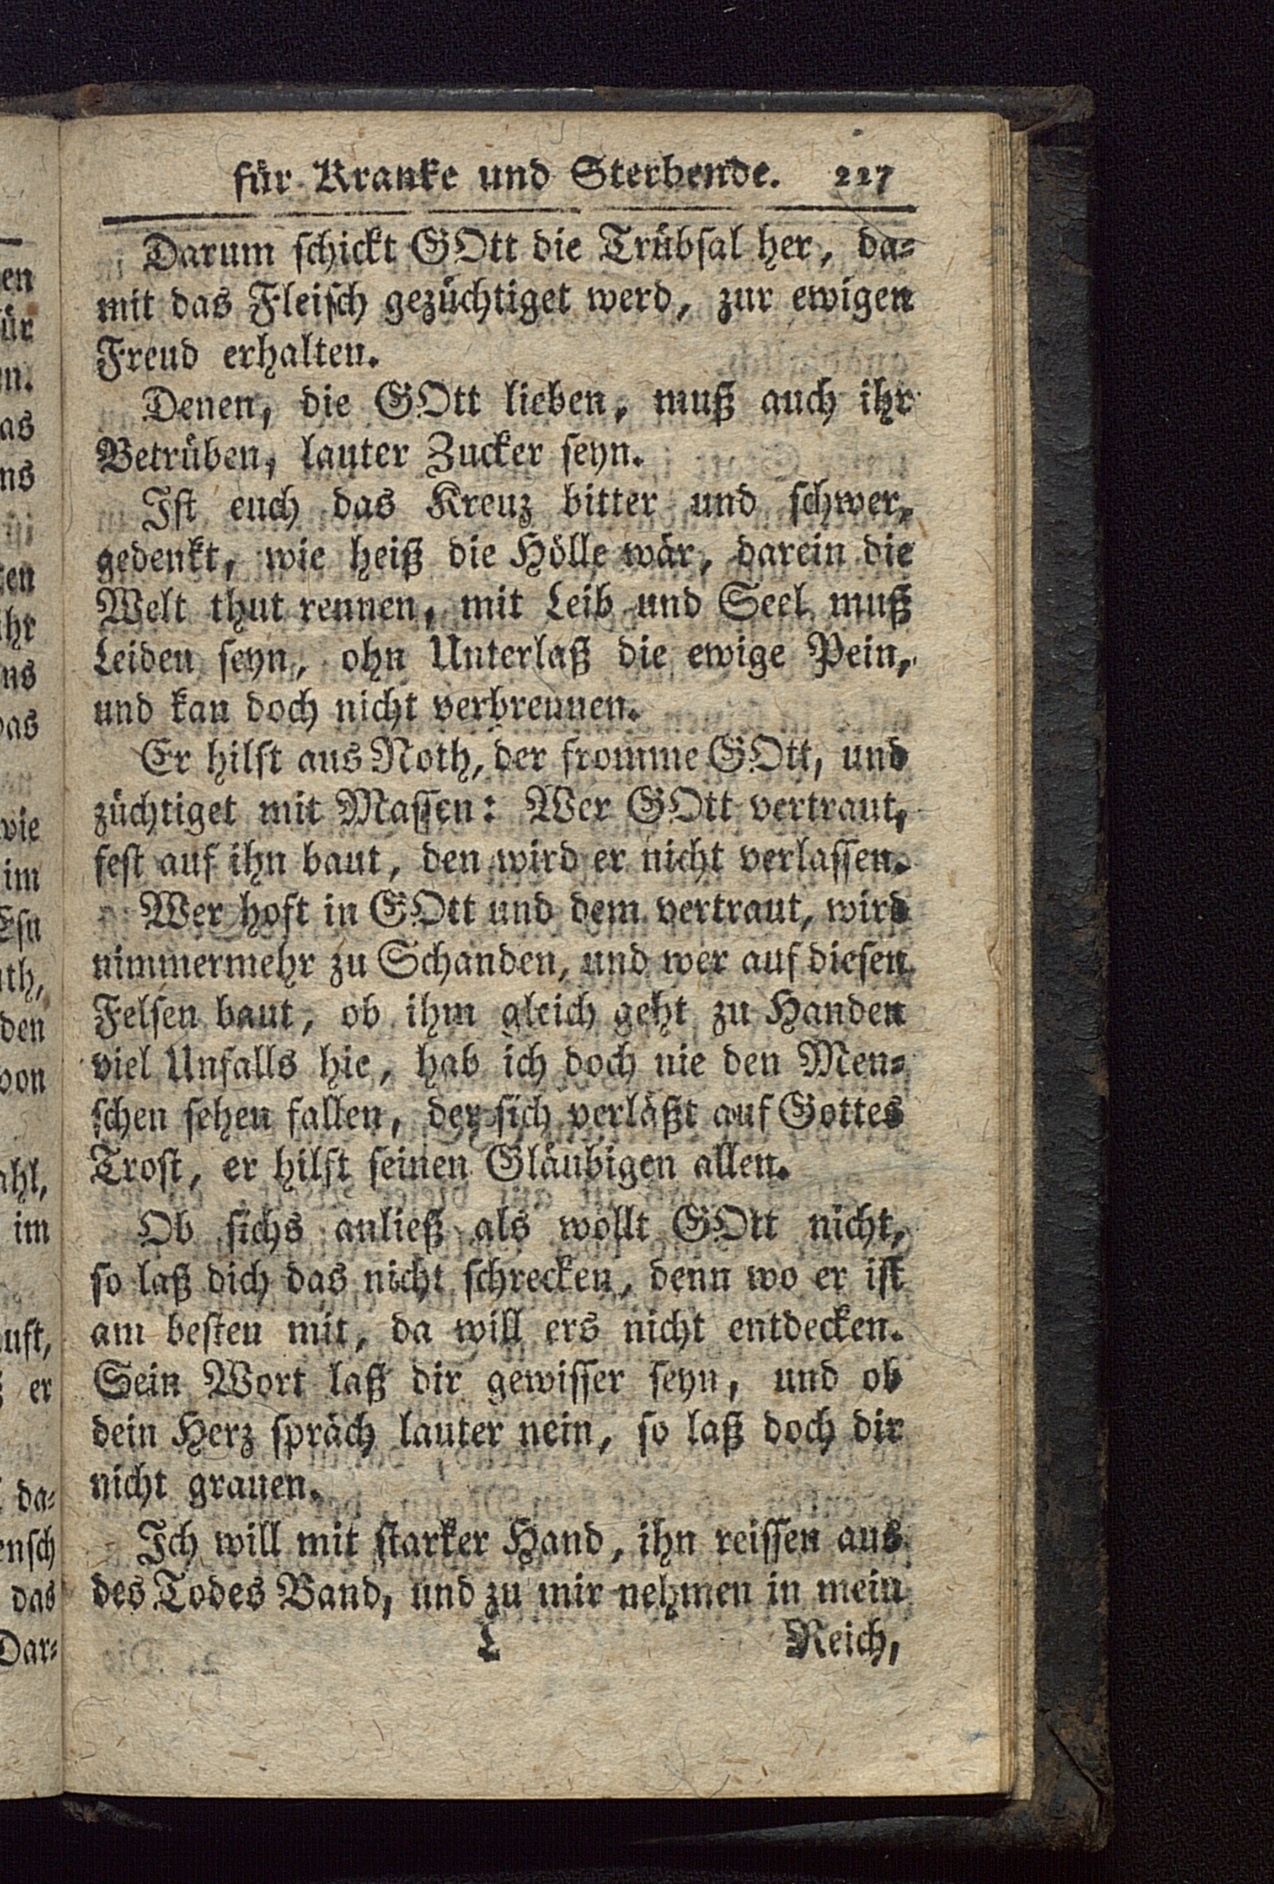 für Kranke und Sterbende. 227
Darum schickt GOtt die Trübsal her, da-
mit das Fleisch gezüchtiget werd, zur ewigen
Freud erhalten.
Denen, die GOtt lieben, muß auch ihr
Betrüben, lauter Zucker seyn.
Ist euch das Kreuz bitter und schwer,
gedenkt, wie heiß die Hölle wär, darein die
Welt thut rennen, mit Leib und Seel muß
Leiden seyn, ohn Unterlaß die ewige Pein,
und kan doch nicht verbrennen.
Er hilft aus Noth, der fromme GOtt, und
züchtiget mit Massen: Wer GOtt vertraut,
fest auf ihn baut, den wird er nicht verlassen.
Wer hoft in GOtt und dem vertraut, wird
nimmermehr zu Schanden, und wer auf diesen
Felsen baut, ob ihm gleich geht zu Handen
viel Unfalls hie, hab ich doch nie den Men-
schen sehen fallen, der sich verläßt auf Gottes
Trost, er hilft seinen Gläubigen allen.
Ob sichs anließ als wollt GOtt nicht,
so laß dich das nicht schrecken, denn wo er ist
am besten mit, da will ers nicht entdecken.
Sein Wort laß dir gewisser seyn, und ob
dein Herz spräch lauter nein, so laß doch dir
nicht grauen.
Ich will mit starker Hand, ihn reissen aus
des Todes Band, und zu mir nehmen in mein
L Reich,